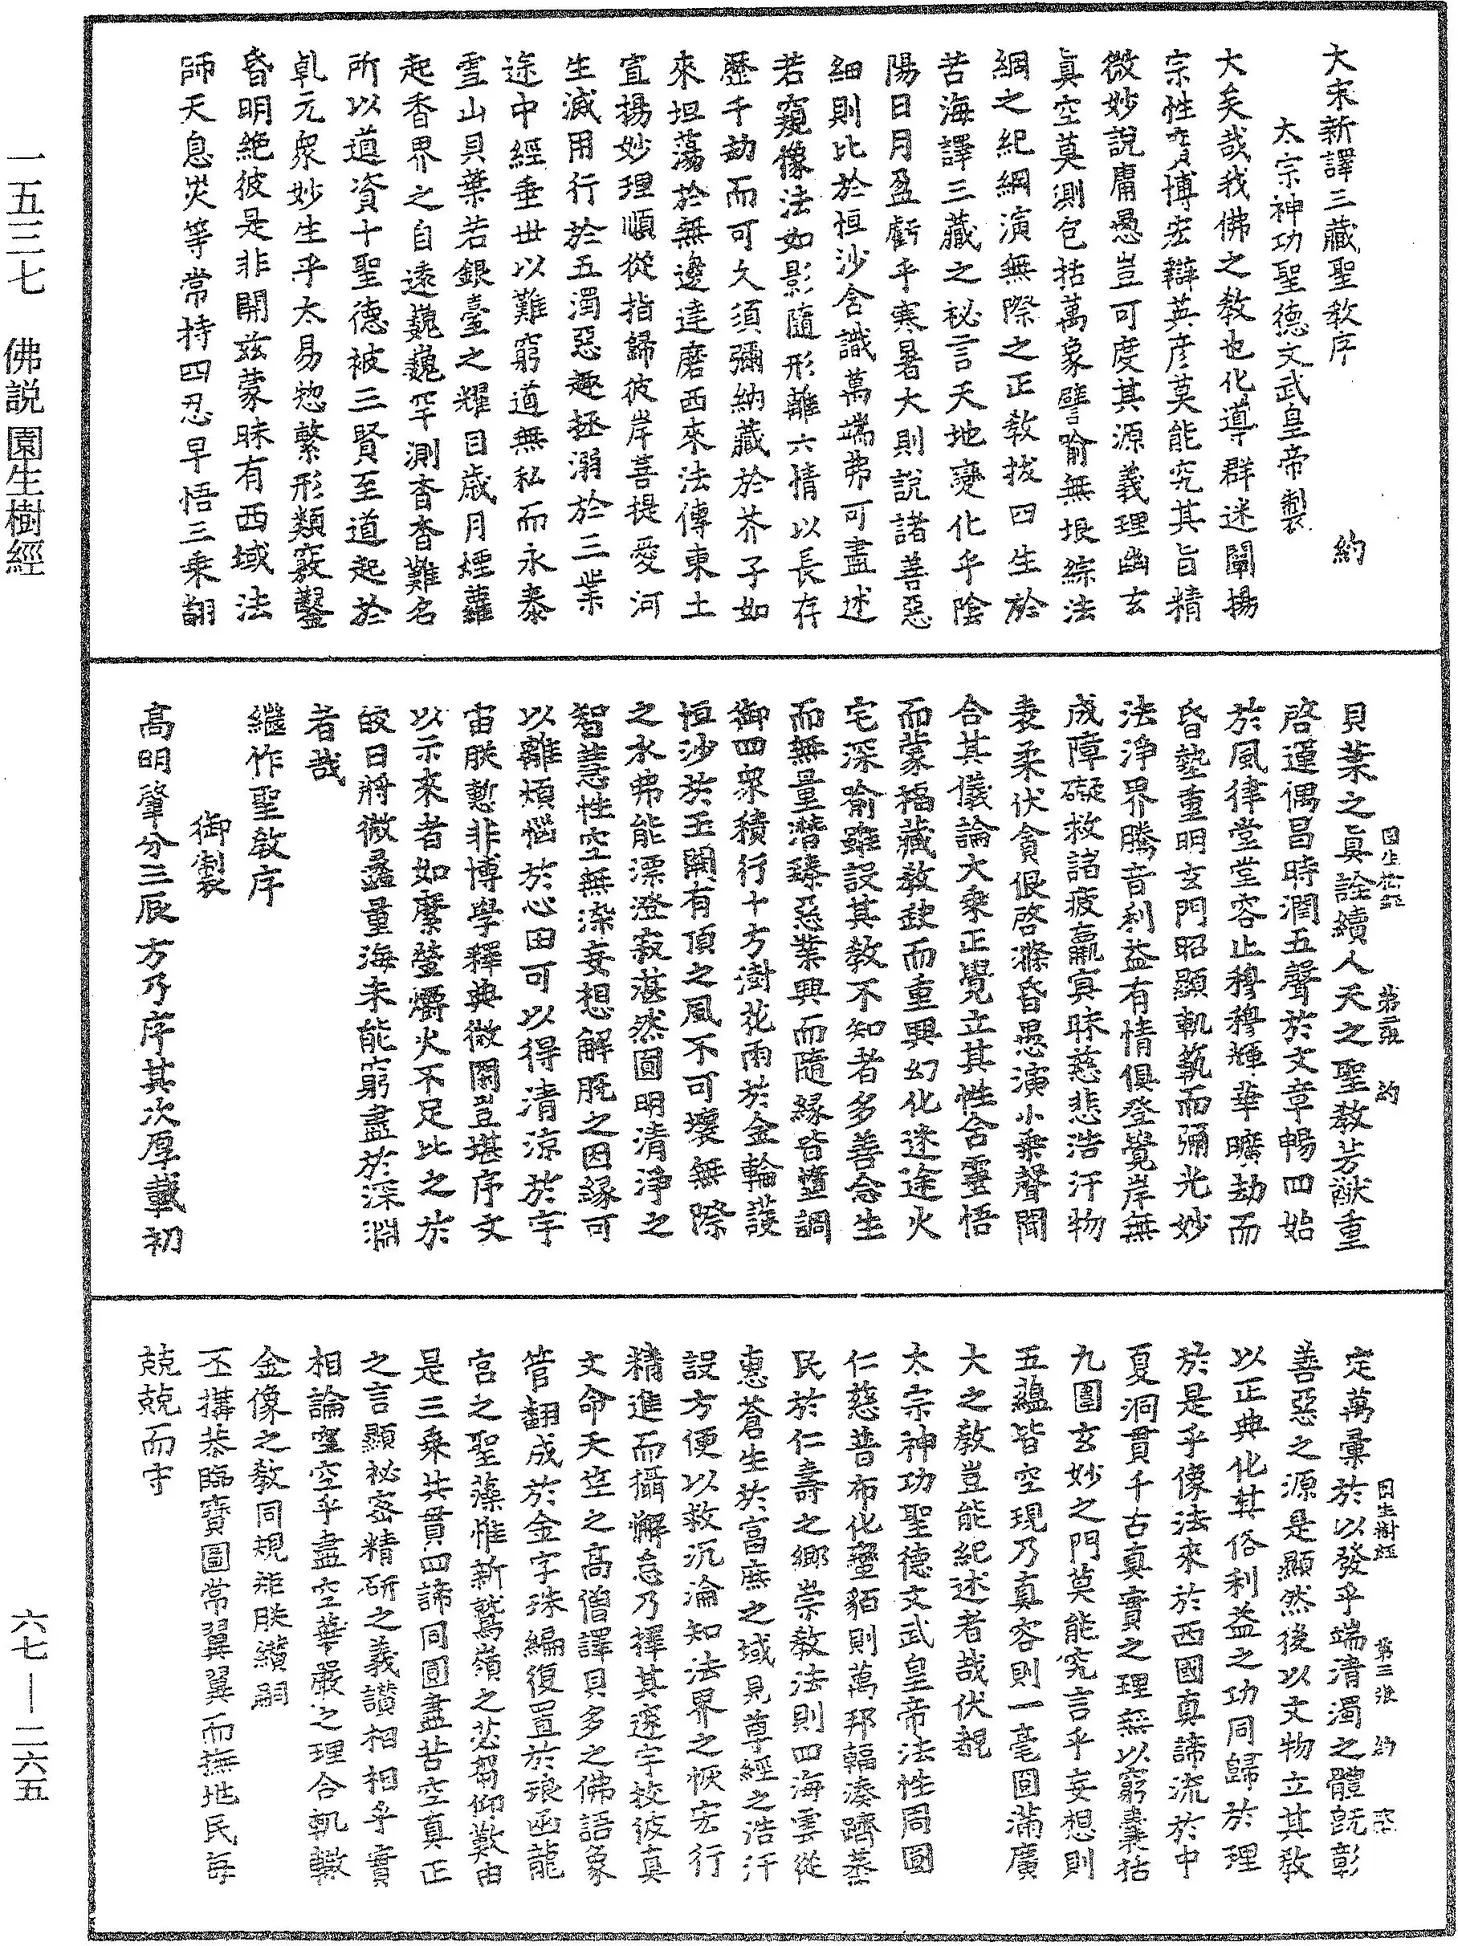 大宋新譯三藏聖教序　約
太宗神功聖德文武皇帝製
大矣哉我佛之教也化導群迷闡揚
宗性廣博宏辯英彥莫能究其旨精
微妙說庸愚豈可度其源義理幽玄
真空莫測包括萬象譬喻無垠綜法
綱之紀綱演無際之正教拔四生於
苦海譯三藏之秘言天地變化乎陰
陽日月盈虧乎寒暑大則說諸善惡
細則比於恒沙含識萬端弗可盡述
若窺像法如影隨形離六情以長存
歷千劫而可久須彌納藏於芥子如
來坦蕩於無邊達磨西來法傳東土
宣揚妙理順從指歸彼岸菩提愛河
生滅用行於五濁惡趣拯溺於三業
途中經垂世以難窮道無私而永泰
雪山貝葉若銀臺之耀目歲月煙蘿
起香界之自遠巍巍罕測杳杳難名
所以道資十聖德被三賢至道起於
乹元衆妙生乎太易惣繁形類竅鑿
昏明絶彼是非開兹蒙昧有西域法
師天息災等常持四忍早悟三乘翻
貝葉之真詮續人天之聖教芳猷重
啓運偶昌時潤五聲於文章暢四始
於風律堂堂容止穆穆輝華曠劫而
昏蟄重明玄門昭顯軌範而彌光妙
法淨界騰音利益有情俱登覺岸無
成障礙救諸疲羸冥昧慈悲浩汗物
表柔伏貪佷啓滌昏愚演小乘聲聞
合其儀論大乘正覺立其性含靈悟
而蒙福藏教缺而重興幻化迷途火
宅深喻雖設其教不知者多善念生
而無量潛臻惡業興而隨緣皆墮調
御四衆積行十方澍花雨於金輪護
恒沙於玉闕有頂之風不可壞無際
之水弗能漂澄寂湛然圓明清淨之
智慧性空無染妄想解脫之因緣可
以離煩惱於心田可以得清涼於宇
宙朕慙非博學釋典微閑豈堪序文
以示來者如縻螢爝火不足比之於
皎日將微蠡量海未能窮盡於深淵
者哉
繼作聖教序
御製
高明肇分三辰方乃序其次厚載初
定萬彙於以發乎端清濁之體旣彰
善惡之源是顯然後以文物立其教
以正典化其俗利益之功同歸於理
於是乎像法來於西國真諦流於中
夏洞貫千古真實之理無以窮囊括
九圍玄妙之門莫能究言乎妄想則
五蘊皆空現乃真容則一毫圓滿廣
大之教豈能紀述者哉伏覩
太宗神功聖德文武皇帝法性周圓
仁慈普布化蠻貊則萬邦輻湊躋蒸
民於仁壽之鄉崇教法則四海雲從
惠蒼生於富庶之域見尊經之浩汗
設方便以救沉淪知法界之恢宏行
精進而攝懈怠乃擇其邃宇挍彼真
文命天竺之高僧譯貝多之佛語象
管翻成於金字珠編復置於琅函龍
宮之聖藻惟新鷲嶺之苾芻仰歎由
是三乘共貫四諦同圓盡苦空真正
之言顯祕密精研之義讃相相乎實
相論空空乎盡空華嚴之理合軌轍
金像之教同規矩朕纘嗣
丕搆恭臨寶圖常翼翼而撫地民每
兢兢而守
園生樹經　第二張　約
園生樹經　第三張　約
一五三七　佛說園生樹經
六七—二六五